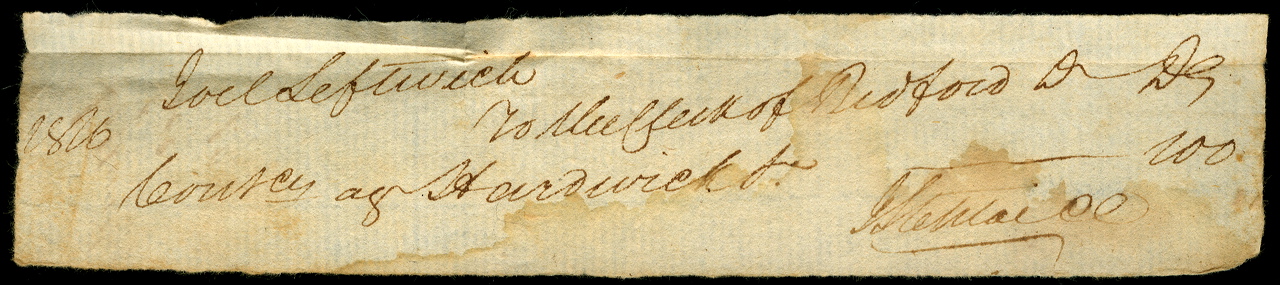 Joel Leftwich
To the Clerk of Bedford Dr D
1806
Contcy ag Hardwick Jr 100